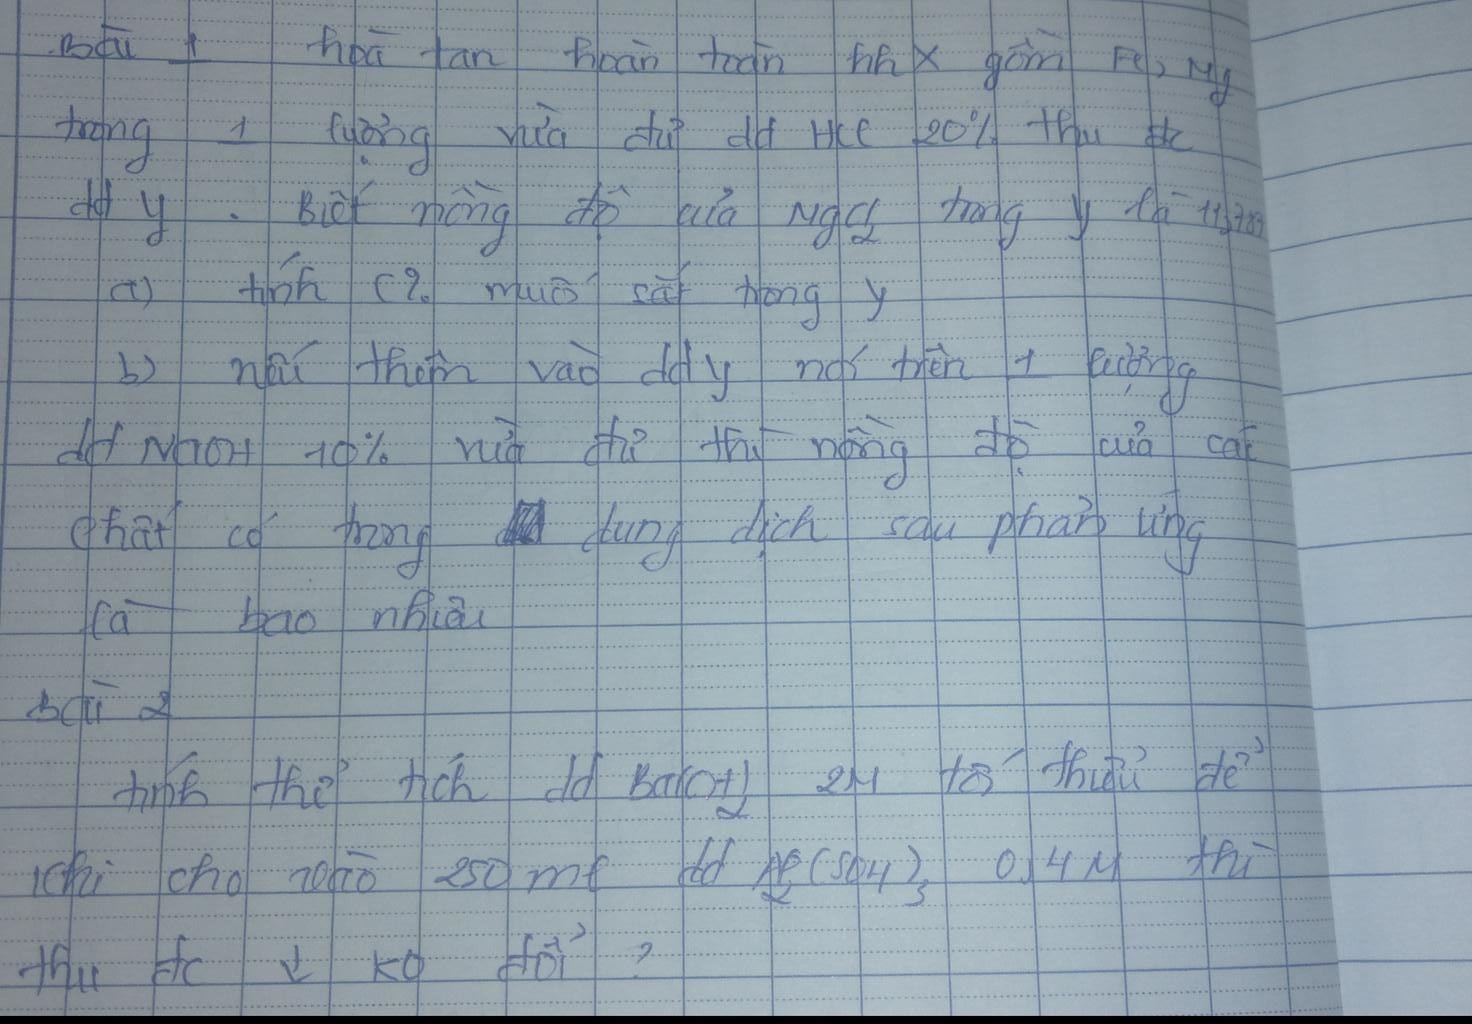 Bài 1 hoà tan hoàn toàn hh X gồm Fe, Mg
trong 1 lượng vừa đủ dd HCl 20% thu đc
dd y. Biết nồng độ của MgCl2 trong y là 11,787
a) tính C% muối sắt trong y
b) nếu thêm vào dd y nói trên 1 lượng
dd NaOH 10% vừa đủ thì nồng độ của các
chất có trong dung dịch sau phản ứng
là bao nhiêu
bài 2
tính thể tích dd Ba(OH)2 2M tối thiểu để
khi cho vào 250 ml dd Al2(SO4)3 0,4M thì
thu đc ↓ ko đổi?